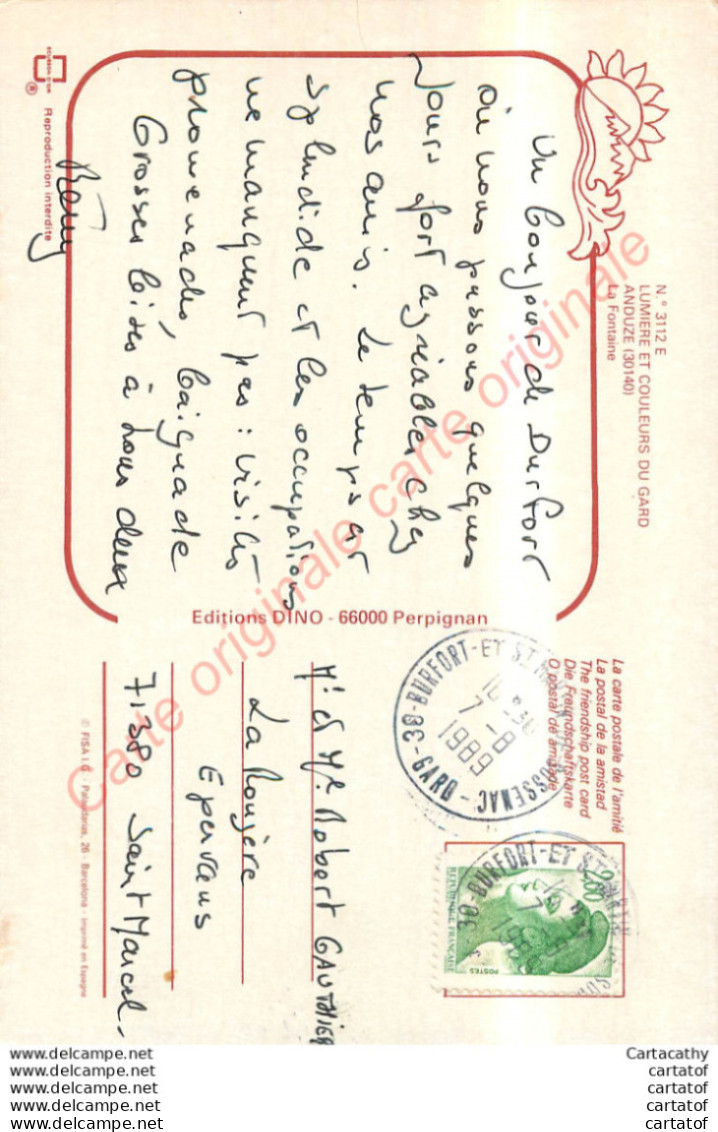 N.° 3112 E
LUMIERE ET COULEURS DU GARD
ANDUZE (30140)
La Fontaine
Un bonjour de Durfort
où nous passons quelques
jours fort agréables chez
nos amis. Le temps est
splendide et les occupations
ne manquent pas : visites
promenades, baignade
Grosses bises à tous deux
Rémy
ECUSSON D'OR
® Reproduction interdite
Editions DINO - 66000 Perpignan
La carte postale de l'amitié
La postal de la amistad
The friendship post card
Die Freundschaftskarte
O postal de amizade
30-DURFORT-ET ST MARTIN
SOSSENAC
GARD
7-8
1989
30-DURFORT-ET ST MARTIN
2,00
REPUBLIQUE FRANÇAISE
POSTES
Mr et Me Robert GAUTHIER
La Rougère
Epervans
71380 Saint Marcel.
© FISA I.G. - Palaudarias, 26 - Barcelona - Imprimé en Espagne
Carte originale carte originale
www.delcampe.net
www.delcampe.net
www.delcampe.net
www.delcampe.net
www.delcampe.net
Cartacathy
cartatof
cartatof
cartatof
cartatof